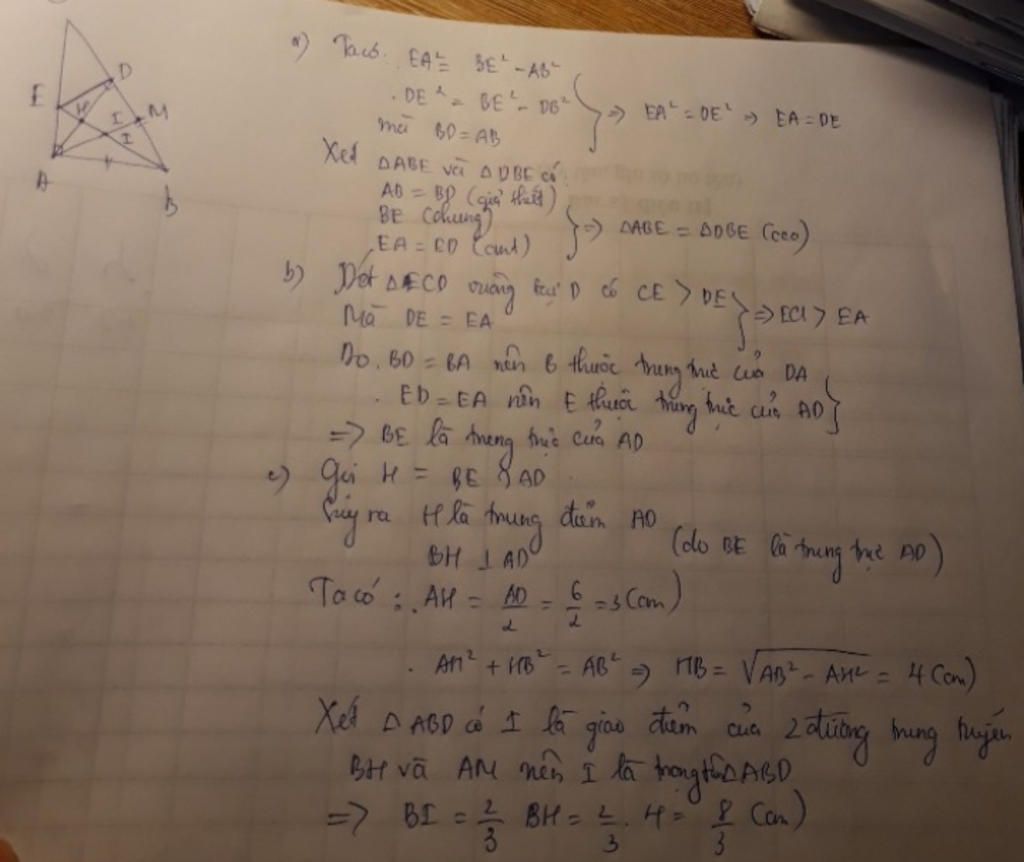 E
D
H
I
M
I
A
B
a) Ta có: EA² = BE² - AB²
. DE² = BE² - DB²
mà BD = AB
=> EA² = DE² => EA = DE
Xét ΔABE và ΔDBE có
AB = BD (giả thiết)
BE (chung)
EA = ED (cmt)
=> ΔABE = ΔDBE (ccc)
b) Xét ΔECD vuông tại D có CE > DE
Mà DE = EA
=> EC > EA
Do . BD = BA nên B thuộc trung trực của DA
. ED = EA nên E thuộc trung trực của AD
=> BE là trung trực của AD
c) Gọi H = BE ∩ AD
Suy ra H là trung điểm AD
BH ⊥ AD
(do BE là trung trực AD)
Ta có : . AH = AD/2 = 6/2 = 3 (cm)
. AH² + HB² = AB² => HB = √(AB² - AH²) = 4 (cm)
Xét ΔABD có I là giao điểm của 2 đường trung tuyến
BH và AM nên I là trọng tâm ΔABD
=> BI = 2/3 BH = 2/3 . 4 = 8/3 (cm)